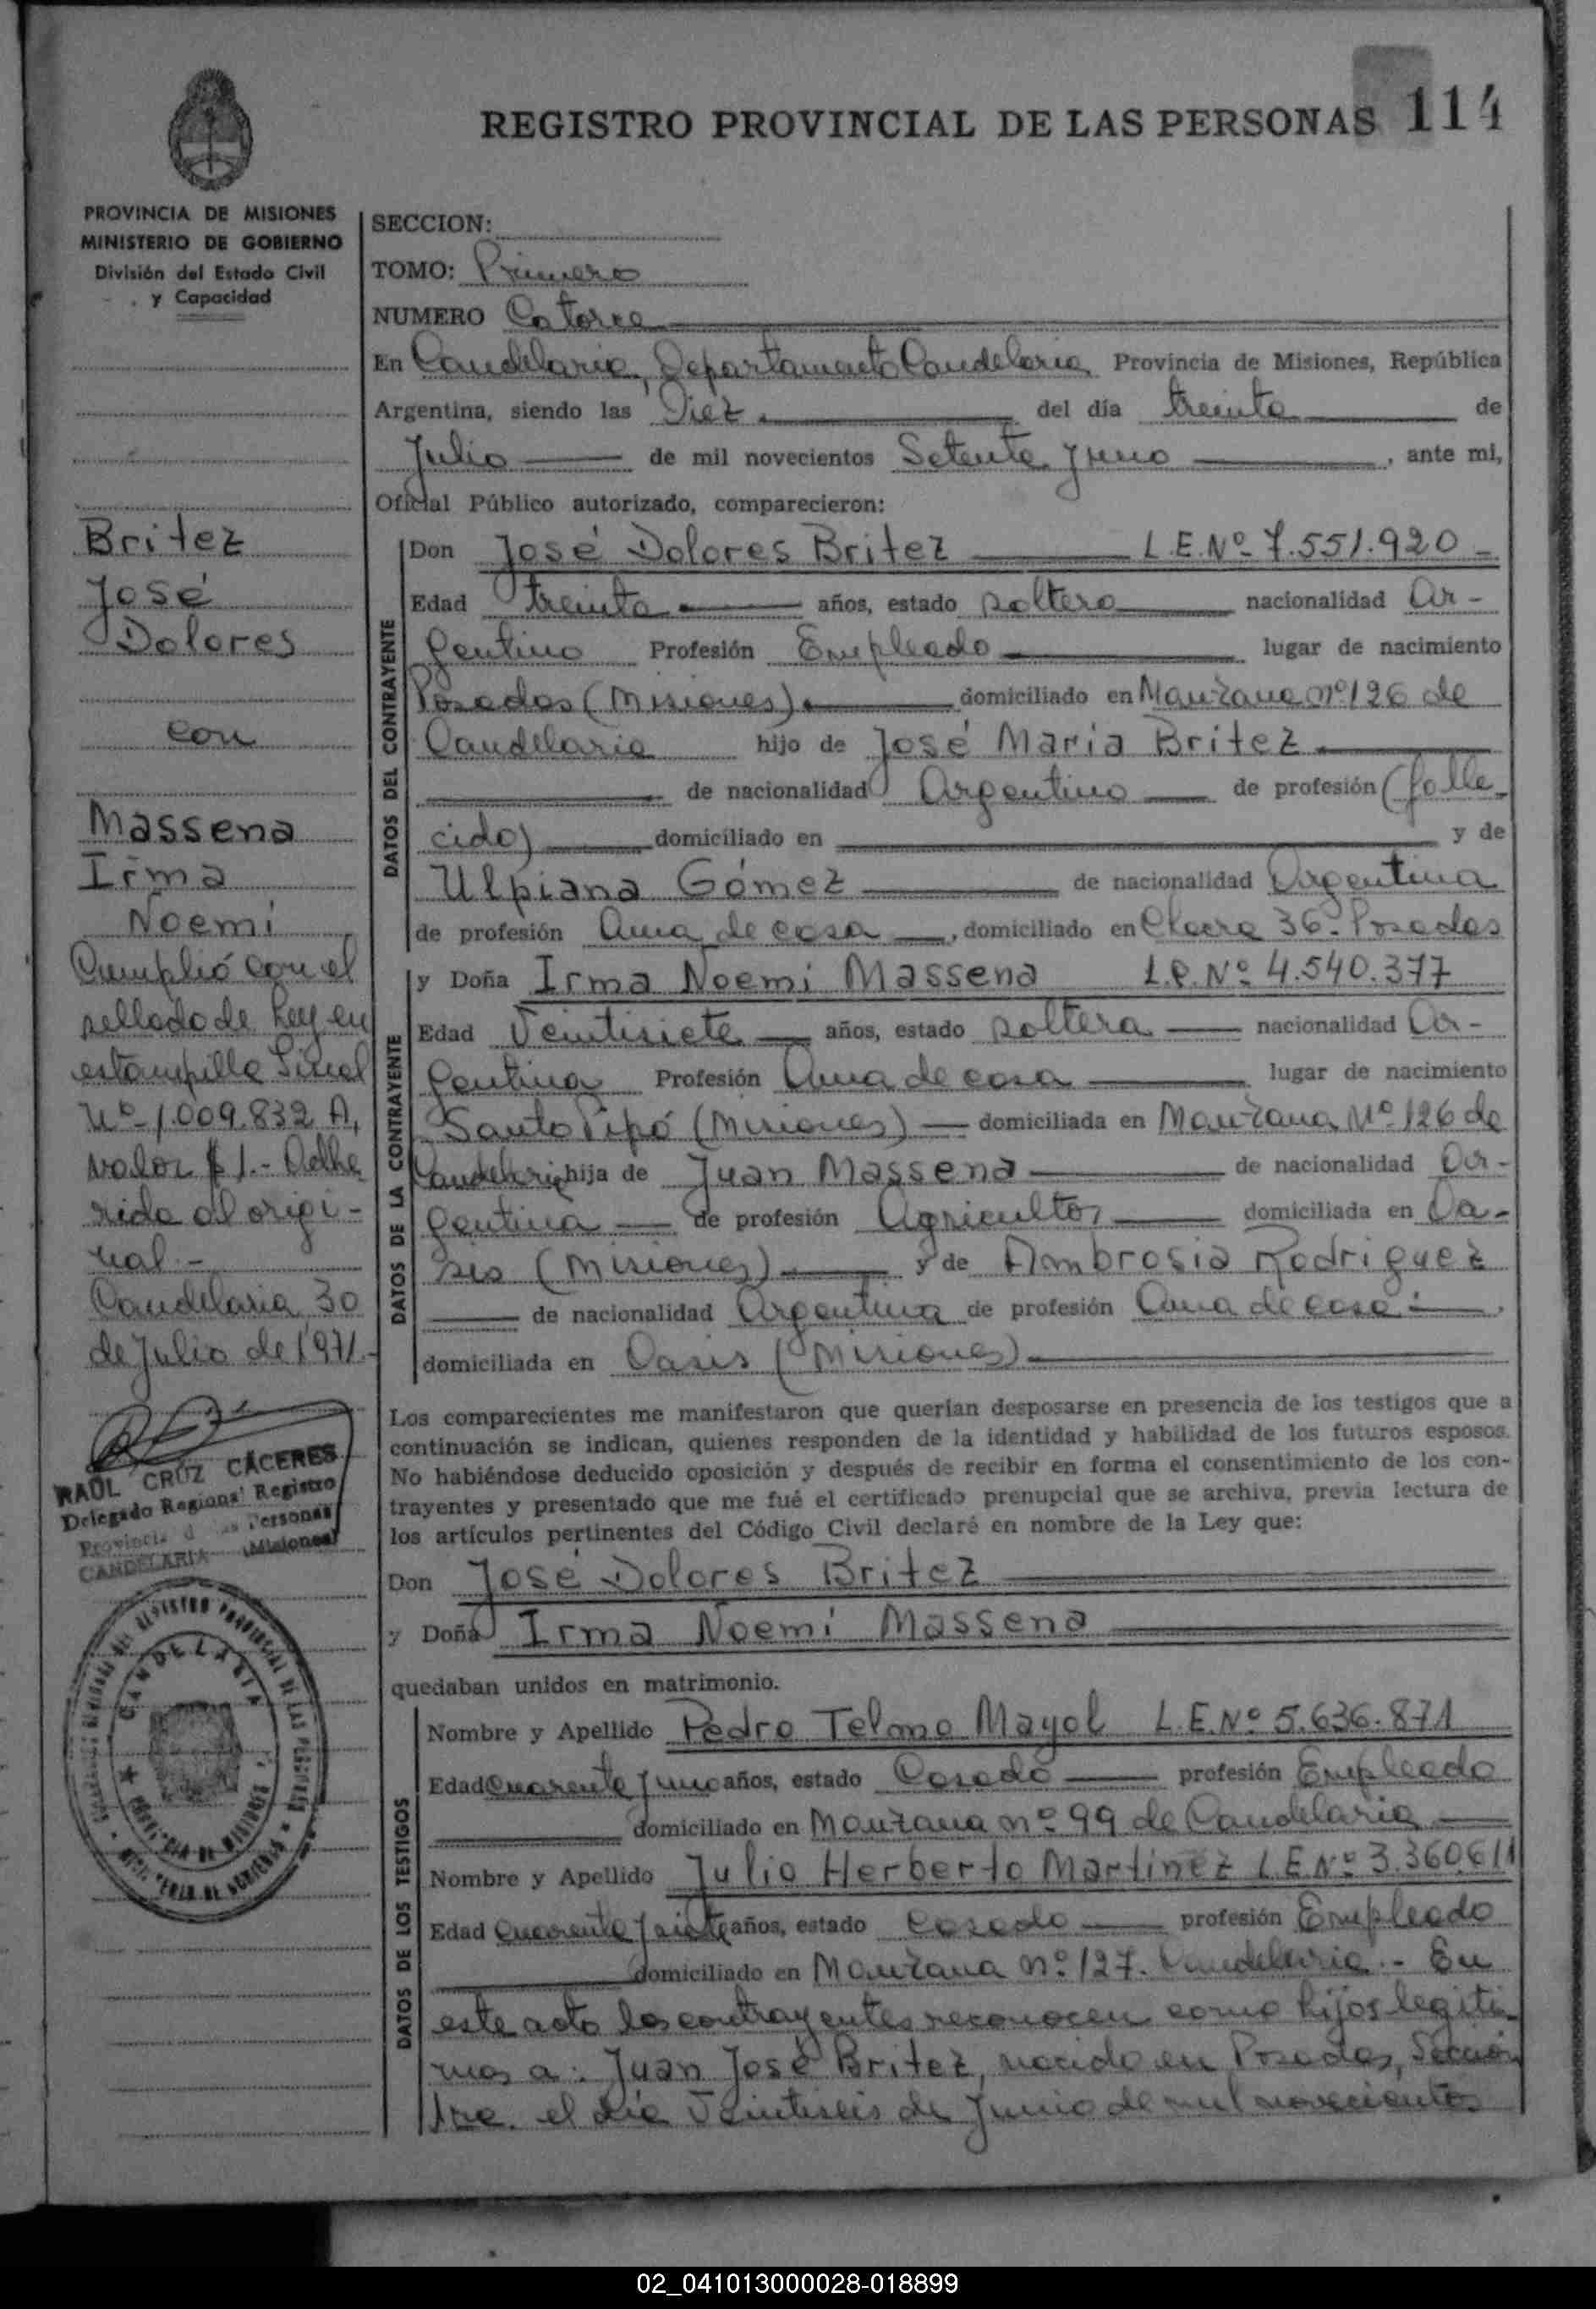 REGISTRO PROVINCIAL DE LAS PERSONAS 114
PROVINCIA DE MISIONES
MINISTERIO DE GOBIERNO
División del Estado Civil
y Capacidad
Britez
José
Dolores
con
Massena
Irma
Noemí
Cumplió con el
sellado de Ley en
estampilla Fiscal
Nº 1.009.832 A,
valor $ 1.- Adhe
rida al origi-
nal.-
Candelaria 30
de Julio de 1971.-
RAÚL CRUZ CÁCERES
Delegado Regional Registro
Provincia d as Personas
CANDELARIA (Misiones)
CANDELARIA
SECCION:
TOMO: Primero
NUMERO Catorce
En Candelaria, Departamento Candelaria, Provincia de Misiones, República
Argentina, siendo las Diez del día treinta de
Julio de mil novecientos Setenta y uno, ante mi,
Oficial Público autorizado, comparecieron:
DATOS DEL CONTRAYENTE
Don José Dolores Britez L.E.Nº 7.551.920
Edad Treinta años, estado soltero nacionalidad Ar-
gentino Profesión Empleado lugar de nacimiento
Posadas (Misiones) domiciliado en Manzana nº 126 de
Candelaria hijo de José Maria Britez
de nacionalidad Argentino de profesión (falle
cido) domiciliado en y de
Ulpiana Gómez de nacionalidad Argentina
de profesión Ama de casa, domiciliado en Chacra 36- Posadas
DATOS DE LA CONTRAYENTE
y Doña Irma Noemí Massena L.C.Nº 4.540.377
Edad Veintisiete años, estado soltera nacionalidad Ar-
gentina Profesión Ama de casa lugar de nacimiento
Santo Pipó (Misiones) domiciliada en Manzana Nº 126 de
Candelaria hija de Juan Massena de nacionalidad Ar-
gentina de profesión Agricultor domiciliada en Oa-
sis (Misiones) y de Ambrosia Rodriguez
de nacionalidad Argentina de profesión Ama de casa
domiciliada en Oasis (Misiones)
Los comparecientes me manifestaron que querían desposarse en presencia de los testigos que a
continuación se indican, quienes responden de la identidad y habilidad de los futuros esposos.
No habiéndose deducido oposición y después de recibir en forma el consentimiento de los con-
trayentes y presentado que me fué el certificado prenupcial que se archiva, previa lectura de
los artículos pertinentes del Código Civil declaré en nombre de la Ley que:
Don José Dolores Britez
y Doña Irma Noemí Massena
quedaban unidos en matrimonio.
DATOS DE LOS TESTIGOS
Nombre y Apellido Pedro Telmo Mayol L.E.Nº 5.636.871
Edad Cuarenta y uno años, estado Casado profesión Empleado
domiciliado en Manzana nº 99 de Candelaria
Nombre y Apellido Julio Herberto Martinez L.E.Nº 3.360.611
Edad Cuarenta y siete años, estado casado profesión Empleado
domiciliado en Manzana nº 127. Candelaria.- En
este acto los contrayentes reconocen como hijos legíti-
mos a: Juan José Britez, nacido en Posadas, Sección
1ra. el día Veintiseis de Junio de mil novecientos
02_041013000028-018899